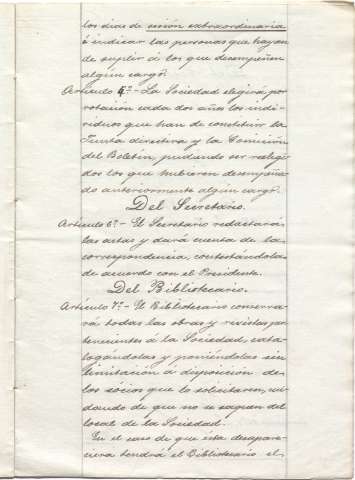 los dias de sesión extraordinaria
é indicar las personas que hayan
de suplir á los que desempeñen
algún cargo.
Artículo 5º.- La Sociedad elegirá por
rotación cada dos años los indi-
viduos que han de constituir la
Junta directiva y la Comisión
del Boletín, pudiendo ser reelegi-
dos los que hubieren desempeña-
do anteriormente algún cargo.
Del Secretario.
Artículo 6º.- El Secretario redactará
las actas y dará cuenta de la
correspondencia, contestándola
de acuerdo con el Presidente.
Del Bibliotecario.
Artículo 7º.- El Bibliotecario conserva-
rá todas las obras y revistas per-
tenecientes á la Sociedad, cata-
logándolas y poniéndolas sin
limitación á disposición de
los socios que lo solicitaren, cui-
dando de que no se saquen del
local de la Sociedad.
En el caso de que ésta desapare-
ciera tendrá el Bibliotecario el